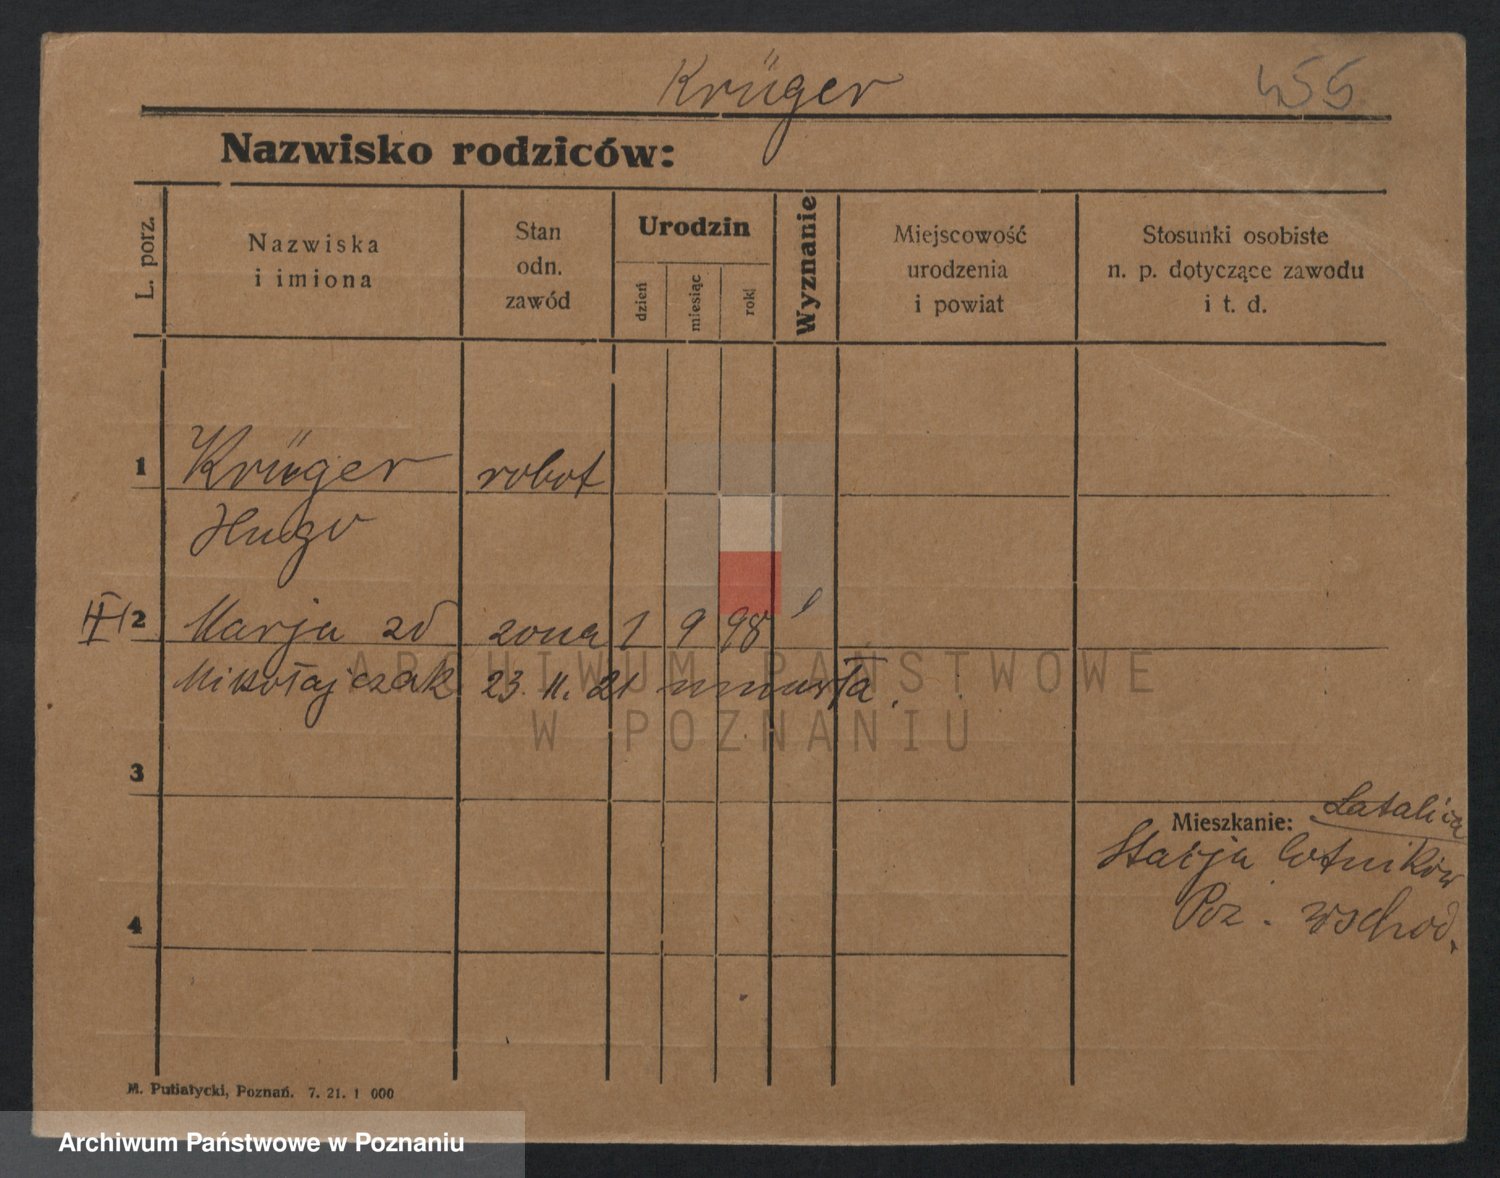 Krüger
455
Nazwisko rodziców:
L. porz.
Nazwiska
i imiona
Stan
odn.
zawód
Urodzin
dzień
miesiąc
rok
Wyznanie
Miejscowość
urodzenia
i powiat
Stosunki osobiste
n. p. dotyczące zawodu
i t. d.
1 Krüger robot
Hugo
2 Marja zd zona 1 9 98
Mikołajczak 23. 11. 21 umarła.
3
Mieszkanie: Latalica
Stacja lotników
Poz. wschod.
4
M. Putiatycki, Poznań. 7. 21. 1 000
ARCHIWUM PAŃSTWOWE
W POZNANIU
Archiwum Państwowe w Poznaniu